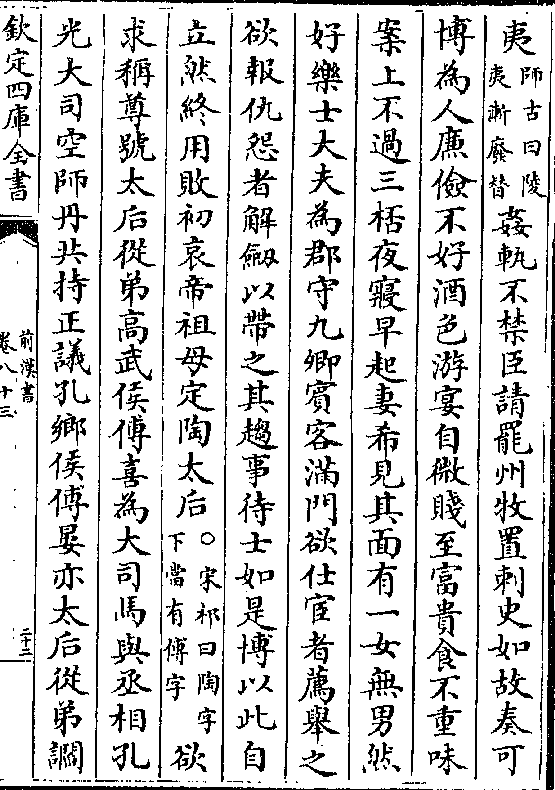 夷師古曰陵夷漸廢替姦軌不禁臣請罷州牧置刺史如故奏可
博為人廉儉不好酒色游宴自微賤至富貴食不重味
案上不過三桮夜寢早起妻希見其面有一女無男然
好樂士大夫為郡守九卿賓客滿門欲仕宦者薦舉之
欲報仇怨者解劔以帶之其趨事待士如是博以此自
立然終用敗初哀帝祖母定陶太后○宋祁曰陶字下當有傅字欲
求稱尊號太后從弟高武侯傅喜為大司馬與丞相孔
光大司空師丹共持正議孔鄉侯傅晏亦太后從弟讇
欽定四庫全書
前漢書
卷八十三
二十三